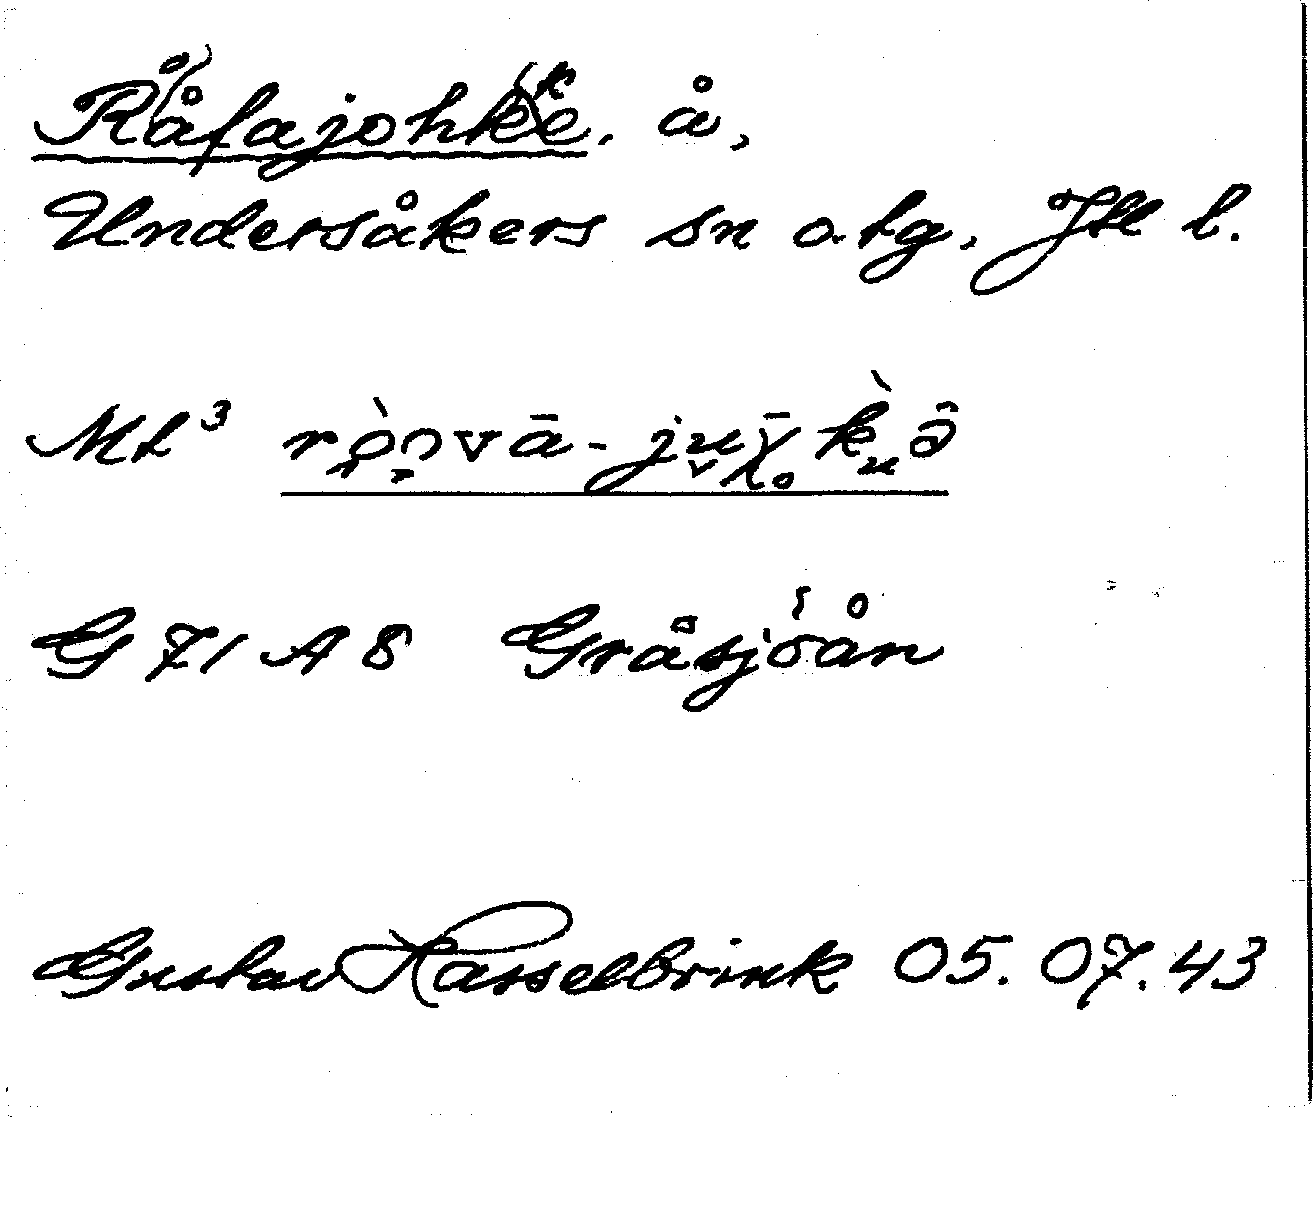 Råfajohke. å,
Undersåkers sn o. tg, Jtl l.
Mt³ rò̭ɔvā-ju̬χ̄ₒk̀ᵤə̂
G 71 A 8 Gråsjöån
Gustav Hasselbrink 05.07.43